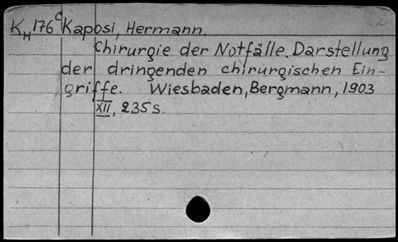 K_H 176^c Kaposi, Hermann.
Chirurgie der Notfälle. Darstellung
der dringenden chirurgischen Ein-
griffe. Wiesbaden, Bergmann, 1903
XII, 235 s.